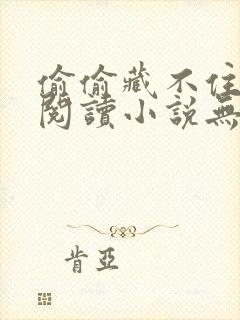 偷偷藏不住
閱讀小說無
肯亞